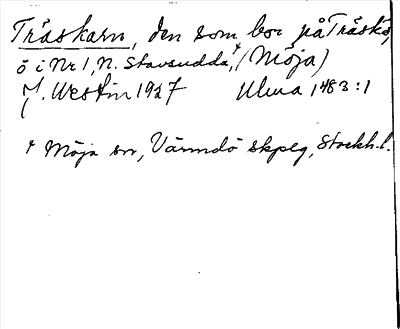 Träskarn, den som bor på Träskö,
ö i Nr 1, N. Stavsudda,+ (Möja)
J. Westin 1927 Ulma 1483:1
+ Möja sn, Värmdö skpsg, Stockh.l.